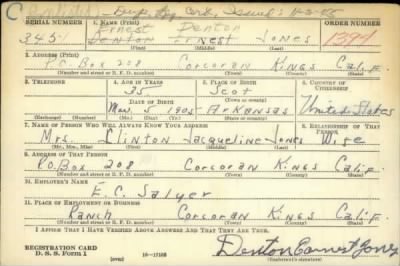 C Dup. Reg. Card Issued
SERIAL NUMBER 1. NAME (Print) ORDER NUMBER
Ernest Denton
345 Denton Ernest Jones 1397
(First) (Middle) (Last)
2. ADDRESS (Print)
P.O. Box 208 Corcoran Kings Calif.
(Number and street or R. F. D. number) (Town) (County) (State)
3. TELEPHONE 4. AGE IN YEARS 5. PLACE OF BIRTH 6. COUNTRY OF CITIZENSHIP
35 Scot
DATE OF BIRTH (Town or county)
May 5 1905 Arkansas United States
(Exchange) (No.) (Mo.) (Day) (Yr.) (State or country)
7. NAME OF PERSON WHO WILL ALWAYS KNOW YOUR ADDRESS 8. RELATIONSHIP OF THAT PERSON
Mrs. Clinton Jacqueline Jones Wife
(Mr., Mrs., Miss) (First) (Middle) (Last)
9. ADDRESS OF THAT PERSON
P.O. Box 208 Corcoran Kings Calif.
(Number and street or R. F. D. number) (Town) (County) (State)
10. EMPLOYER'S NAME
E. C. Salyer
11. PLACE OF EMPLOYMENT OR BUSINESS
Ranch Corcoran Kings Calif.
(Number and street or R. F. D. number) (Town) (County) (State)
I AFFIRM THAT I HAVE VERIFIED ABOVE ANSWERS AND THAT THEY ARE TRUE.
REGISTRATION CARD
D. S. S. Form 1 (over) 16—17105 Denton Earnest Jones
(Registrant's signature)